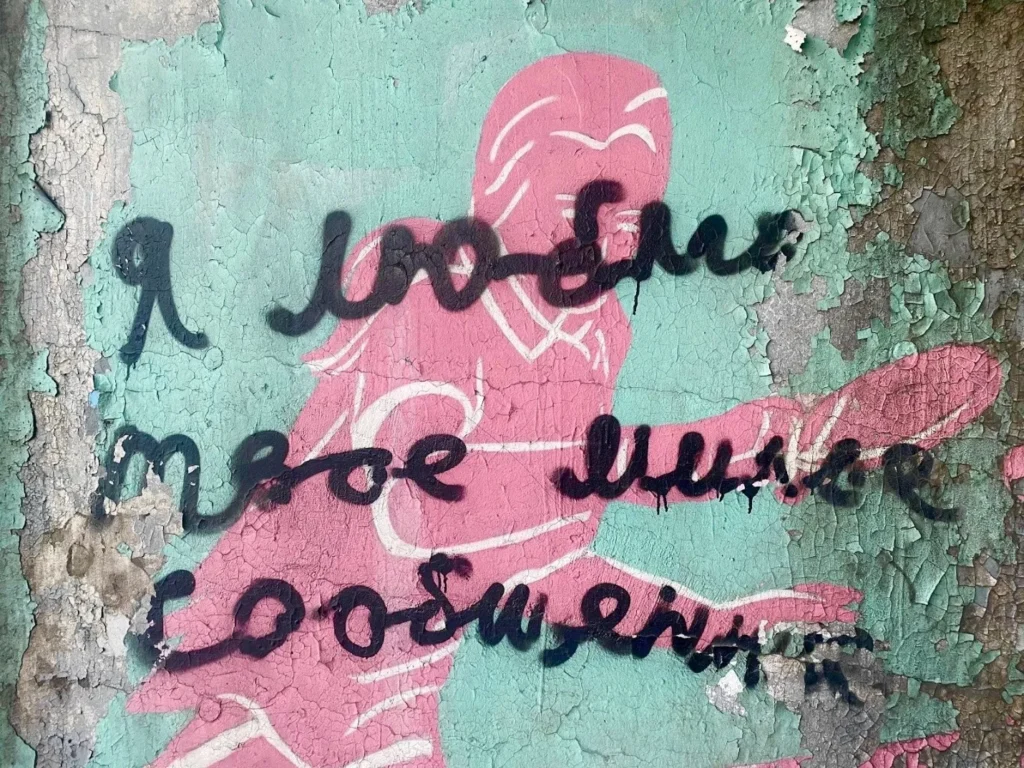 я люблю
твое милое
сообщение